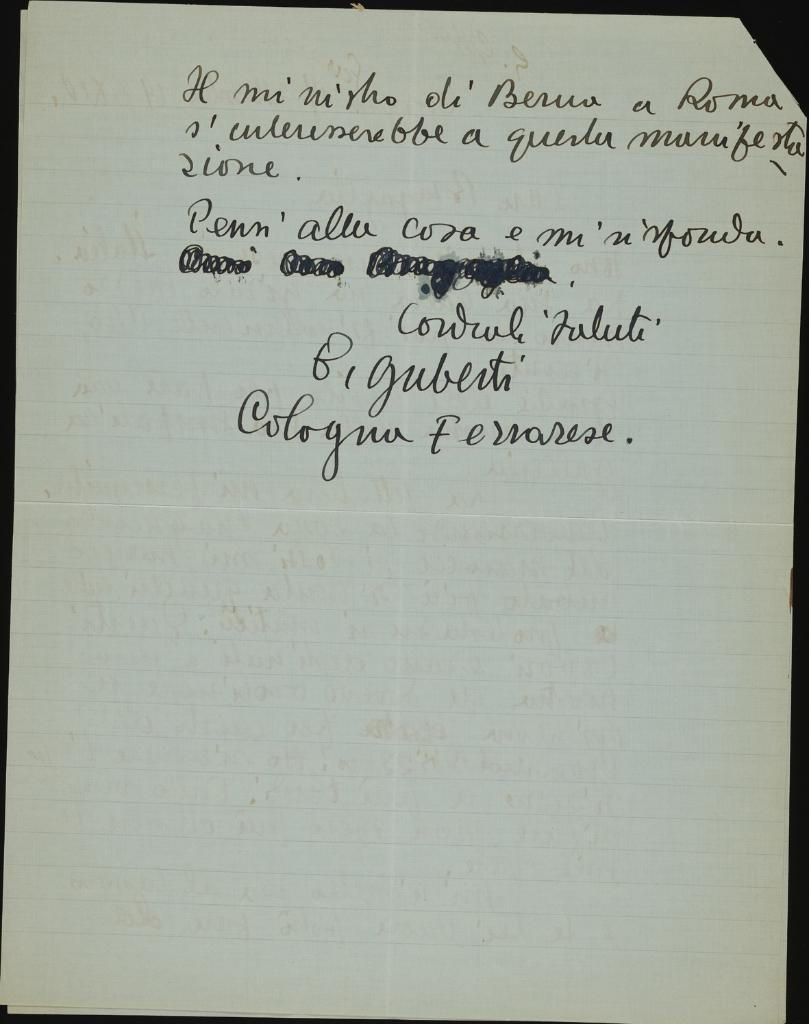 Il ministro di Berna a Roma
s'interesserebbe a questa manifesta
zione.
Pensi alla cosa e mi risponda.
Cordiali saluti
G. Guberti
Cologna Ferrarese.